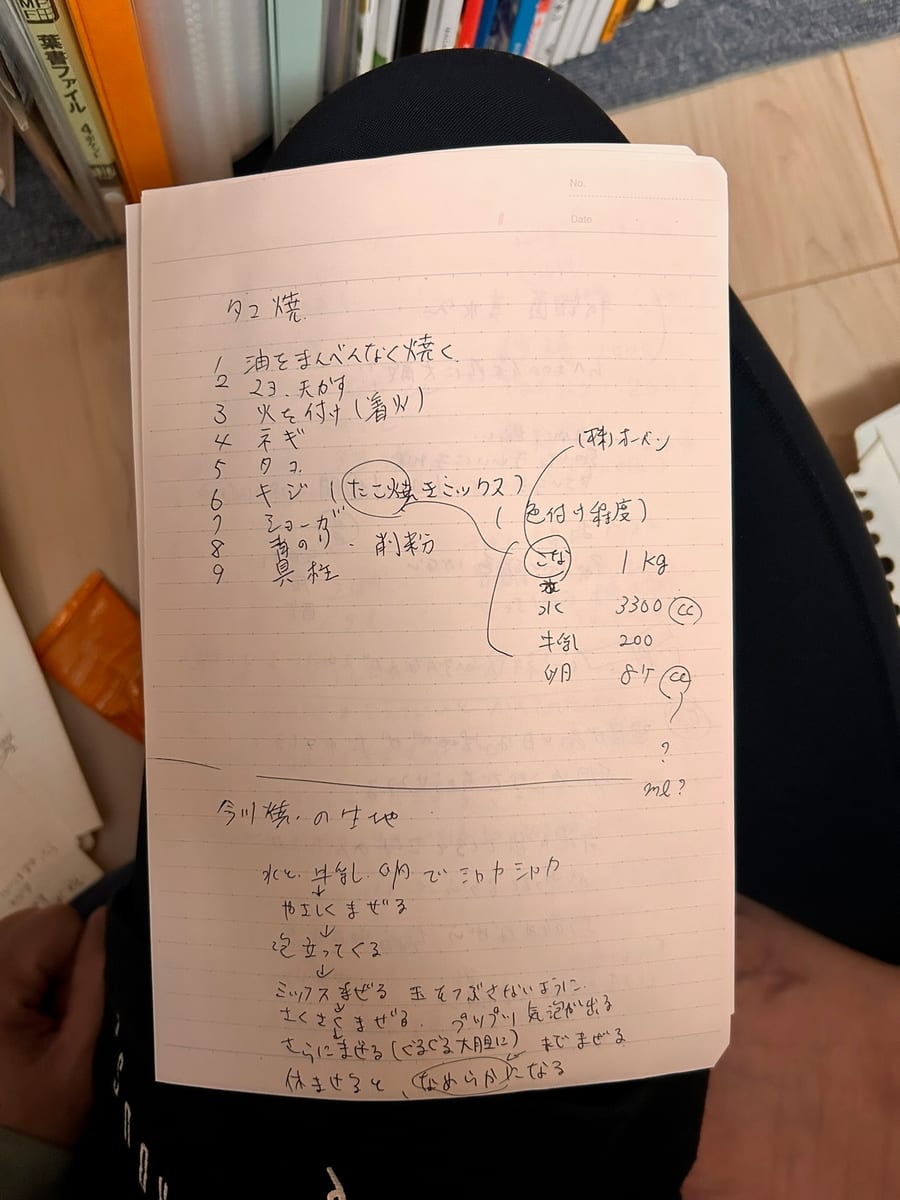 葉書ファイル
No.
Date
タコ焼
1 油をまんべんなく焼く.
2 天かす
3 火を付け(着火)
4 ネギ
5 タコ
6 キジ(たこ焼きミックス)
7 ショーガ
8 青のり・削粉
9
(株)オーベン
(色付け程度)
こな 1kg
水 3300 cc
牛乳 200
卵 8ケ cc
?
ml?
今川焼の生地
水と、牛乳、卵でシャカシャカ
↓
やさしくまぜる
↓
泡立ってくる
↓
ミックスまぜる 玉をつぶさないように
↓
さくさくまぜる. プツプツ気泡が出る
↓
さらにまぜる(ぐるぐる大胆に) までまぜる
休ませると、なめらかになる